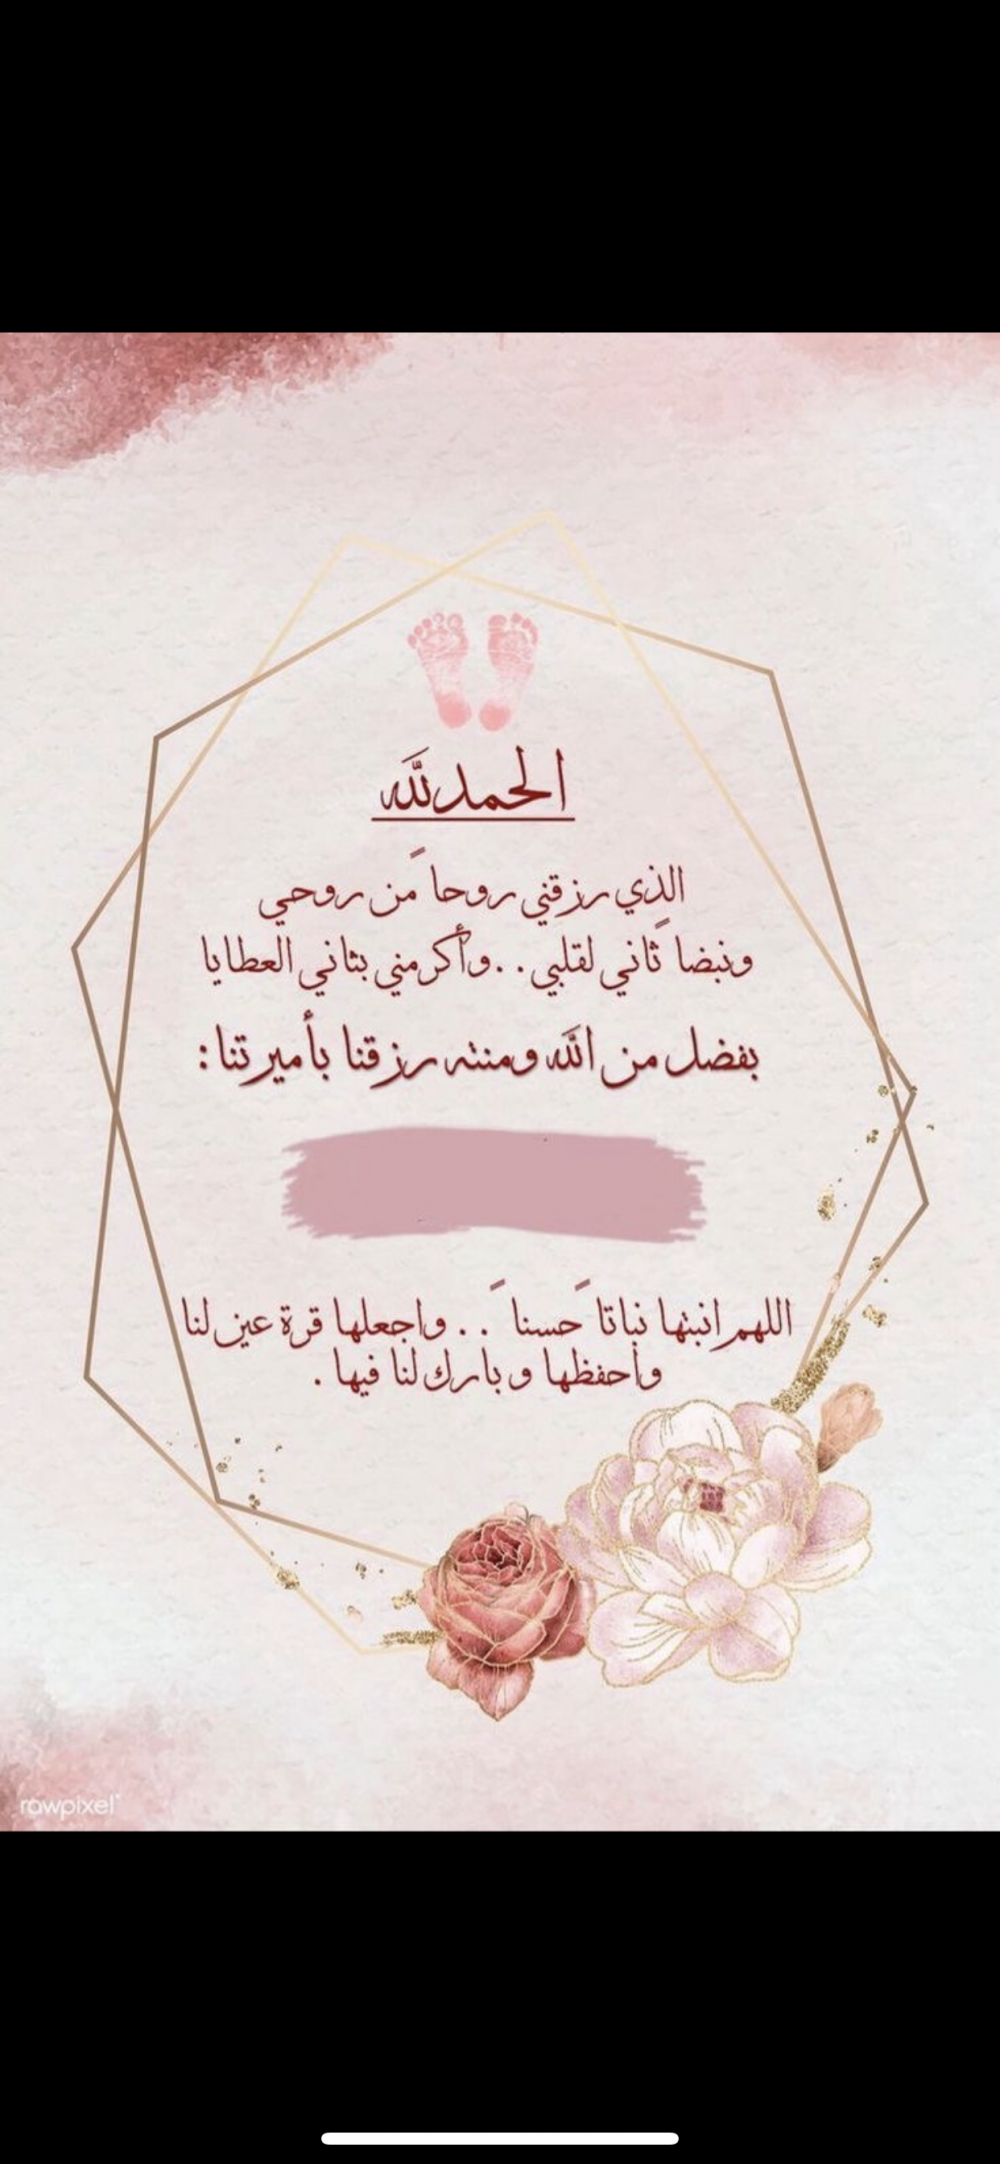 الحمدلله
الذي رزقني روحاً من روحي
ونبضاً ثاني لقلبي . . وأكرمني بثاني العطايا
بفضل من الله ومنته رزقنا بأميرتنا :
اللهم انبتها نباتاً حسناً . . واجعلها قرة عين لنا
واحفظها وبارك لنا فيها .
rawpixel